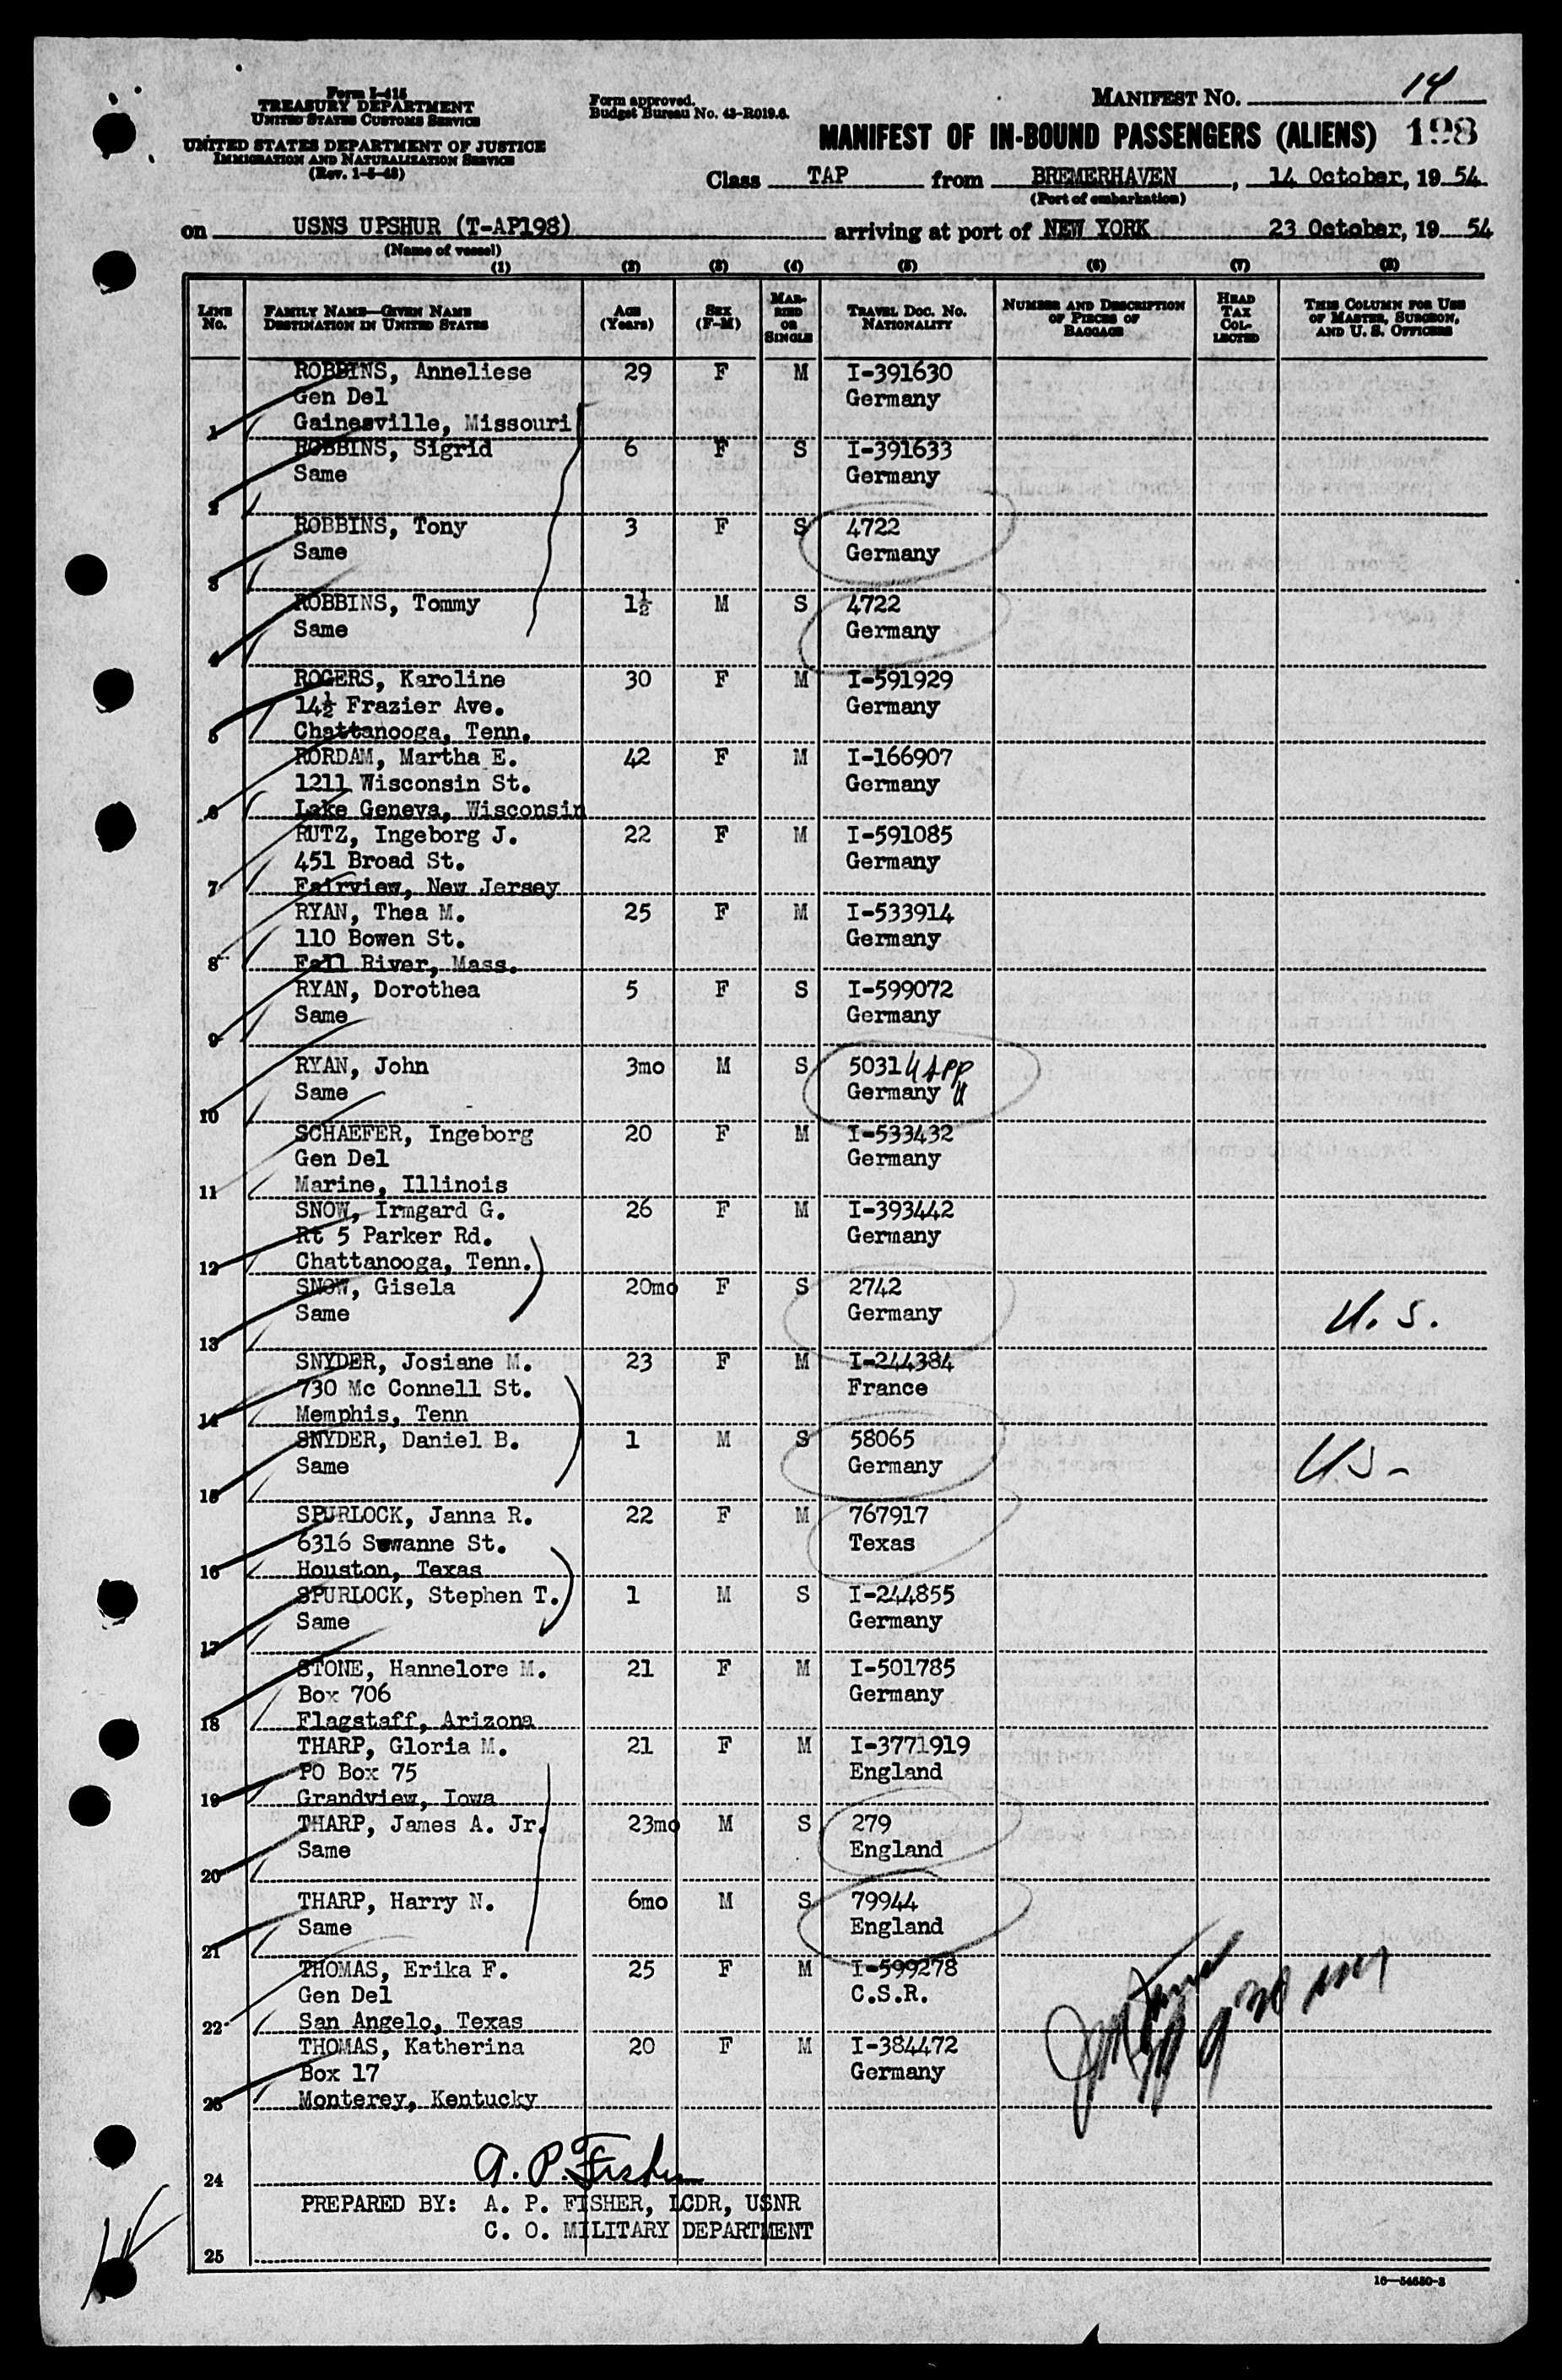 Form I-415
TREASURY DEPARTMENT
UNITED STATES CUSTOMS SERVICE
UNITED STATES DEPARTMENT OF JUSTICE
IMMIGRATION AND NATURALIZATION SERVICE
(Rev. 1-5-48)
Form approved.
Budget Bureau No. 43-R019.6.
MANIFEST NO. 14
MANIFEST OF IN-BOUND PASSENGERS (ALIENS) 198
Class TAP from BREMERHAVEN, 14 October, 19 54
(Port of embarkation)
on USNS UPSHUR (T-AP198) arriving at port of NEW YORK 23 October, 19 54
(Name of vessel)
(1) (2) (3) (4) (5) (6) (7) (8)
LINE No. FAMILY NAME—GIVEN NAME DESTINATION IN UNITED STATES AGE (Years) SEX (F-M) MARRIED OR SINGLE TRAVEL DOC. NO. NATIONALITY NUMBER AND DESCRIPTION OF PIECES OF BAGGAGE HEAD TAX COLLECTED THIS COLUMN FOR USE OF MASTER, SURGEON, AND U. S. OFFICERS
ROBBINS, Anneliese 29 F M I-391630
Gen Del Germany
1 Gainesville, Missouri
ROBBINS, Sigrid 6 F S I-391633
Same Germany
2
ROBBINS, Tony 3 F S 4722
Same Germany
3
ROBBINS, Tommy 1½ M S 4722
Same Germany
4
ROGERS, Karoline 30 F M I-591929
14½ Frazier Ave. Germany
5 Chattanooga, Tenn.
RORDAM, Martha E. 42 F M I-166907
1211 Wisconsin St. Germany
6 Lake Geneva, Wisconsin
RUTZ, Ingeborg J. 22 F M I-591085
451 Broad St. Germany
7 Fairview, New Jersey
RYAN, Thea M. 25 F M I-533914
110 Bowen St. Germany
8 Fall River, Mass.
RYAN, Dorothea 5 F S I-599072
Same Germany
9
RYAN, John 3mo M S 5031
Same Germany
10
SCHAEFER, Ingeborg 20 F M I-533432
Gen Del Germany
11 Marine, Illinois
SNOW, Irmgard G. 26 F M I-393442
Rt 5 Parker Rd. Germany
12 Chattanooga, Tenn.
SNOW, Gisela 20mo F S 2742
Same Germany U. S.
13
SNYDER, Josiane M. 23 F M I-244384
730 Mc Connell St. France
14 Memphis, Tenn
SNYDER, Daniel B. 1 M S 58065
Same Germany US-
15
SPURLOCK, Janna R. 22 F M 767917
6316 Sewanne St. Texas
16 Houston, Texas
SPURLOCK, Stephen T. 1 M S I-244855
Same Germany
17
STONE, Hannelore M. 21 F M I-501785
Box 706 Germany
18 Flagstaff, Arizona
THARP, Gloria M. 21 F M I-3771919
PO Box 75 England
19 Grandview, Iowa
THARP, James A. Jr. 23mo M S 279
Same England
20
THARP, Harry N. 6mo M S 79944
Same England
21
THOMAS, Erika F. 25 F M I-599278
Gen Del C.S.R.
22 San Angelo, Texas
THOMAS, Katherina 20 F M I-384472
Box 17 Germany
23 Monterey, Kentucky
A. P. Fisher
24
PREPARED BY: A. P. FISHER, LCDR, USNR
C. O. MILITARY DEPARTMENT
25
16—54650-2